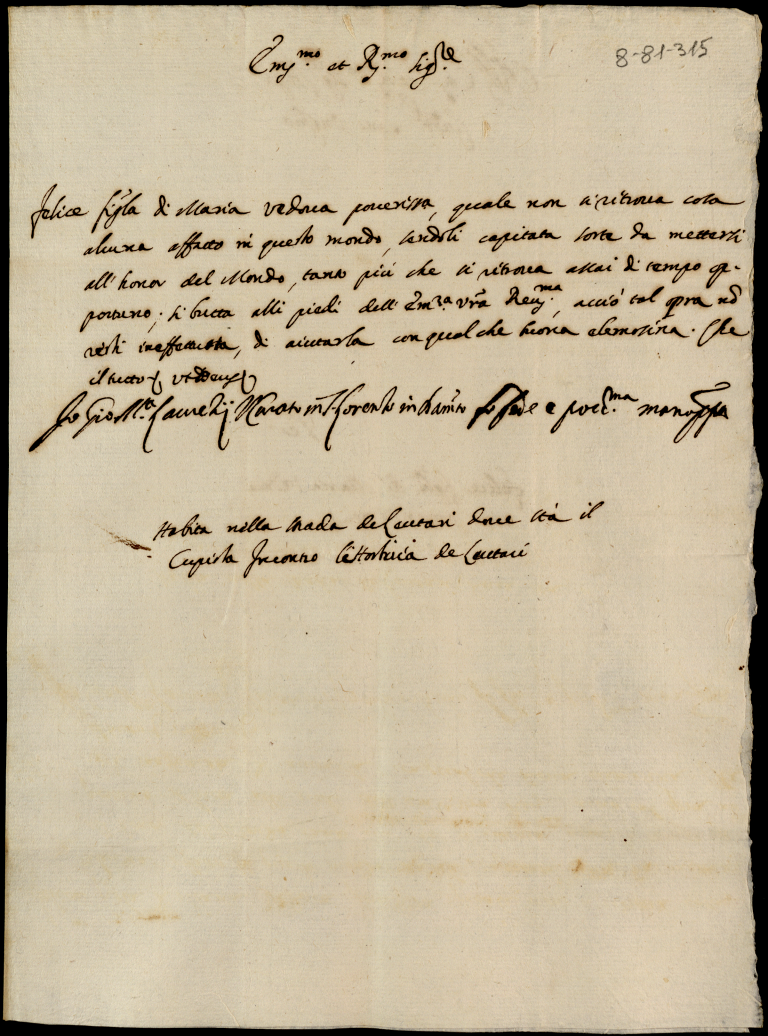 Em.mo et R.mo Sig.re
8-81-315
Felice figla di Maria vedova poverissa, quale non si ritrova cosa
alcuna affatto in questo mondo, sendoli capitata sorte da mettersi
all'honor del Mondo, tanto più che si ritrova assai di tempo op-
portuno, si butta alli piedi dell'Em.za Vrã Rev.ma, acciò tal opra nõ
resti ineffettuata, di aiutarla con qualche buona elemosina. Che
il tutto
Io Gio in Lorenzo in fo fede e manoppa
Habita nella strada de Leutari dove stà il
Cupista Incontro l'Hosteria de Leutari